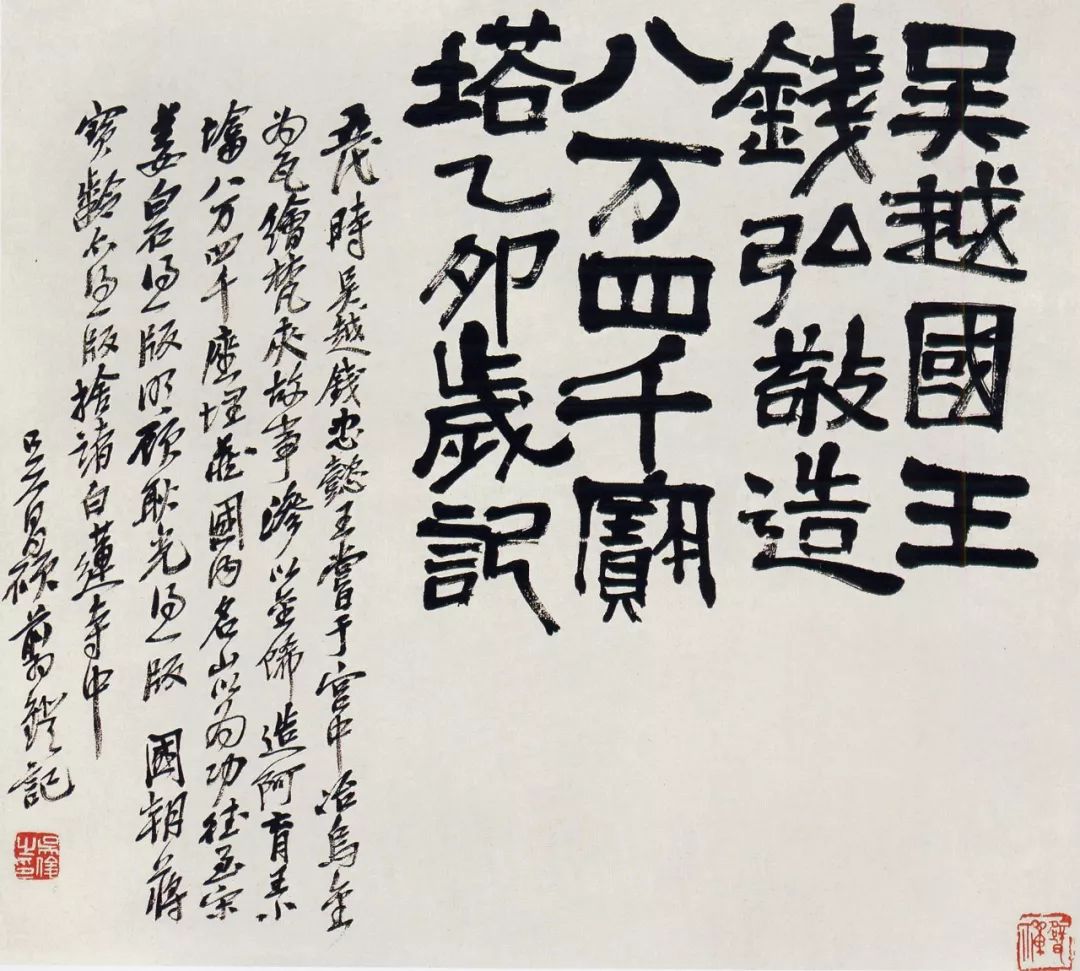 吳越國王
錢弘敬造
八万四千寶
塔乙卯歲記
五代時吳越錢忠懿王嘗于宮中冶烏金
为瓦繪梵夾故事滲以金佛造阿育王小
塔八万四千座埋藏國内名山以为功徳至宋
姜白石得一版明顧耿光得一版國朝蔣
寶齡亦得一版捨諸白蓮寺中
吳昌碩剪鐙記
吳俊之印